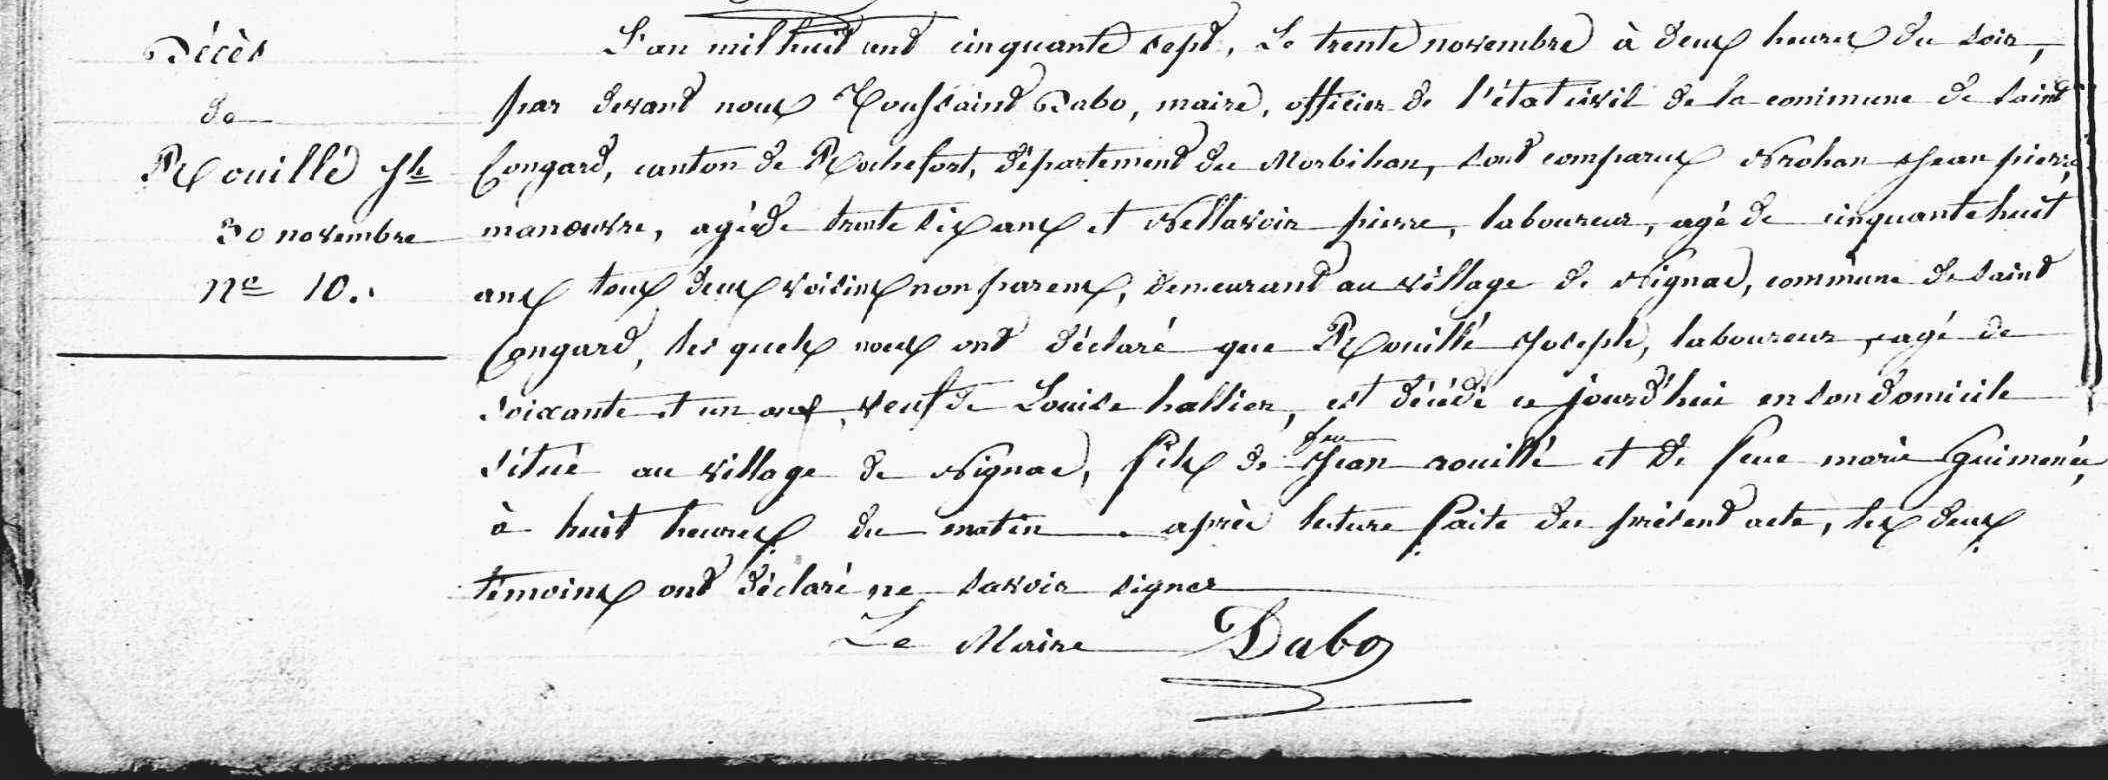 Décès
de
Rouillé Jh
30 novembre
no 10.
L'an mil huit cent cinquante sept, Le trente novembre à deux heures du soir,
par devant nous Toussaint Dabo, maire, officier de l'état civil de la commune de Saint
Congard, canton de Rochefort, département du Morbihan, sont comparus Jean pierre,
manœuvre, agé de trente six ans et pierre, laboureur, agé de cinquante huit
ans tous deux voisins non parens, demeurant au village de Nignac, commune de Saint
Congard, les quels nous ont déclaré que Rouillé Joseph, laboureur, agé de
soixante et un ans, veuf de Louise hallier, est décédé ce jourd'hui en son domicile
situé au village de Nignac, fils de feu Jean rouillé et de feue marie Guimenée,
à huit heures du matin. après lecture faite du présent acte, les deux
témoins ont déclaré ne savoir signer
Le Maire Dabo